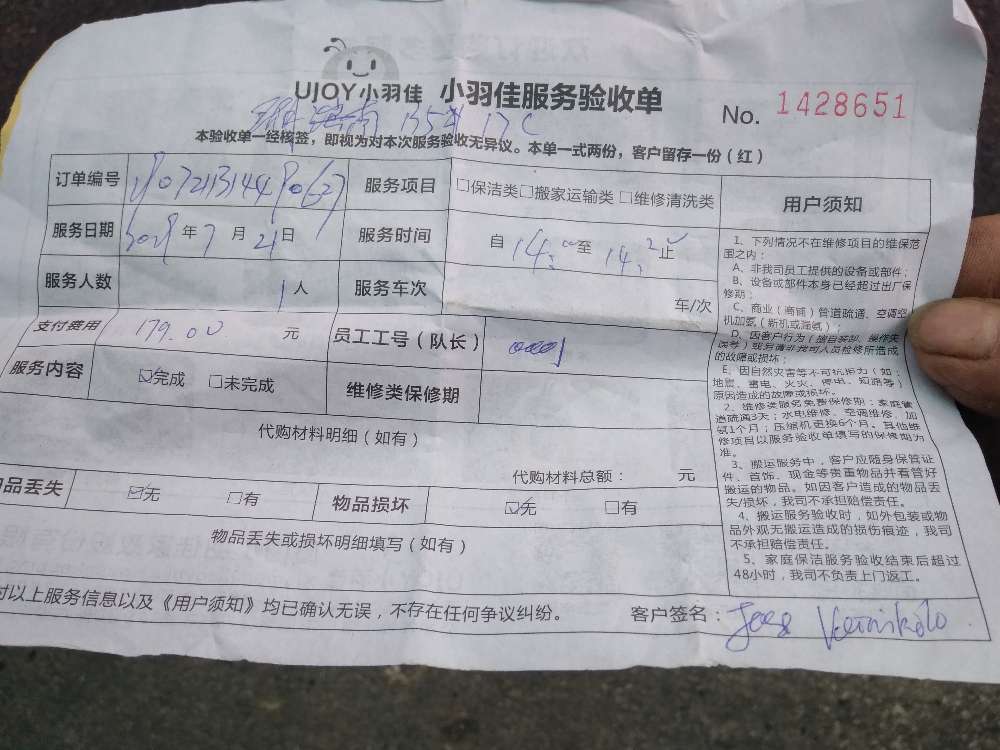 UJOY小羽佳 小羽佳服务验收单
No. 1428651
135 17C
本验收单一经核签，即视为对本次服务验收无异议。本单一式两份，客户留存一份（红）
订单编号 服务项目 □保洁类□搬家运输类 □维修清洗类 用户须知
服务日期 年 7 月 21 日 服务时间 自 14:00 至 14:20 止
服务人数 1 人 服务车次 车/次
支付费用 179.00 元 员工工号（队长）
服务内容 ☑完成 □未完成 维修类保修期
代购材料明细（如有）
代购材料总额： 元
品丢失 ☑无 □有 物品损坏 ☑无 □有
物品丢失或损坏明细填写（如有）
1、下列情况不在维修项目的维保范
围之内：
A、非我司员工提供的设备或部件；
B、设备或部件本身已经超过出厂保
修期；
C、商业（商铺）管道疏通、空调空
机加氨（新机或漏氨）；
D、因客户行为（擅自装卸、操作失
误等）或另请非我司人员检修所造成
的故障或损坏；
E、因自然灾害等不可抗拒力（如：
地震、雷电、火灾、停电、短路等）
原因造成的故障或损坏。
2、维修类服务免费保修期：家庭管
道疏通3天；水电维修、空调维修、加
氨1个月；压缩机更换6个月。其他维
修项目以服务验收单填写的保修期为
准。
3、搬运服务中，客户应随身保管证
件、首饰、现金等贵重物品并看管好
搬运的物品。如因客户造成的物品丢
失/损坏，我司不承担赔偿责任。
4、搬运服务验收时，如外包装或物
品外观无搬运造成的损伤痕迹，我司
不承担赔偿责任。
5、家庭保洁服务验收结束后超过
48小时，我司不负责上门返工。
对以上服务信息以及《用户须知》均已确认无误，不存在任何争议纠纷。 客户签名：